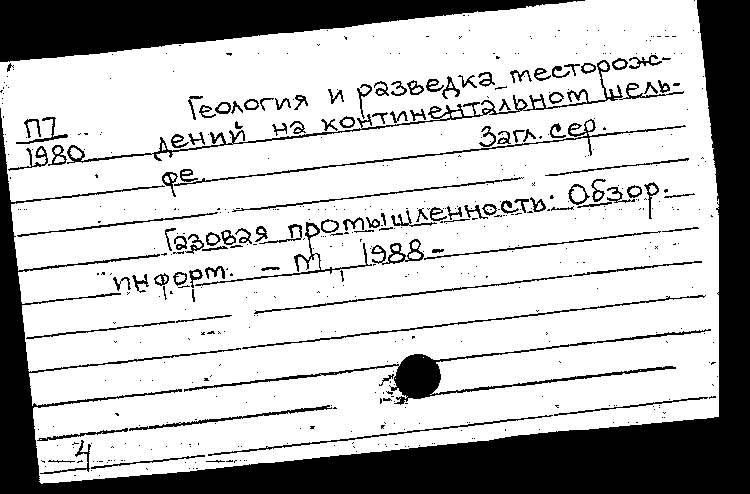 Геология и разведка месторож-
П7
1980
дений на континентальном шель-
фе. Загл. сер.
Газовая промышленность: Обзор.
информ. – М., 1988 –
4